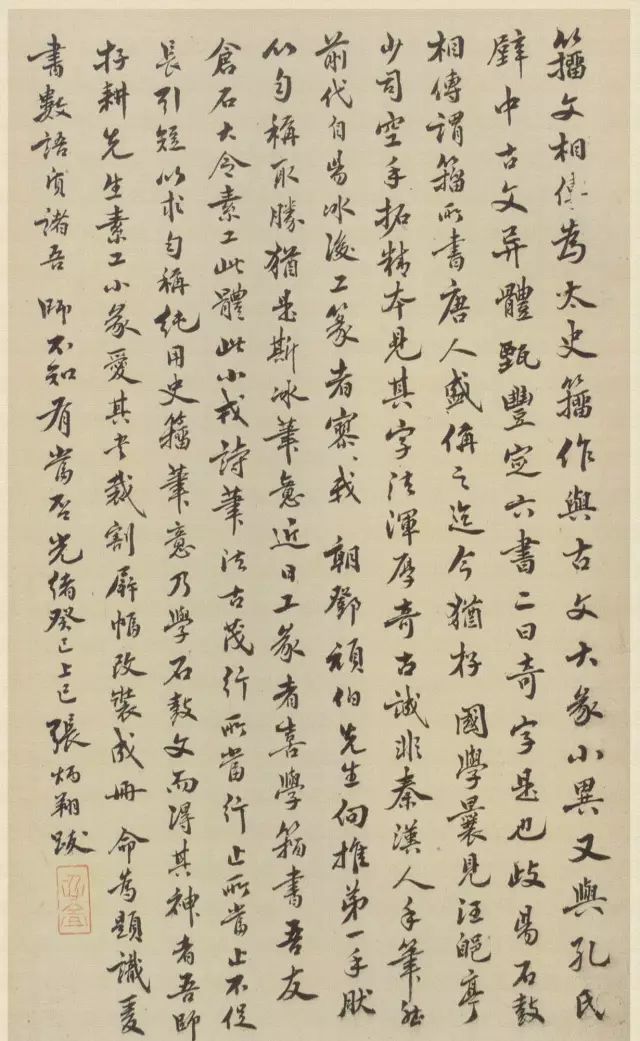 籒文相傳為太史籒作與古文大篆小異又與孔氏
壁中古文異體甄豐定六書二曰奇字是也歧陽石鼓
相傳謂籒所書唐人盛偁之迄今猶存 國學曩見汪郋亭
少司空手拓精本見其字法渾厚奇古誠非秦漢人手筆能
前代自陽冰後工篆者寥〻我 朝鄧頑伯先生何推弟一手肰
以勻稱取勝猶是斯冰筆意近日工篆者喜學籒書吾友
倉石大令素工此體此小戎詩筆法古茂行所當行止所當止不促
長引短以求勻稱純用史籒筆意乃學石鼓文而得其神者吾師
存耕先生素工小篆愛其書裁割屏幅改裝成冊 命為題識爰
書數語質諸吾 師不知有當否光緒癸巳上巳張炳翔跋